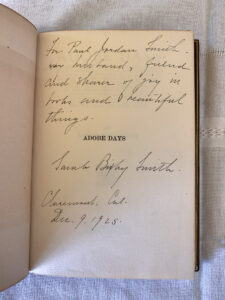 For Paul Jordan Smith -
husband, friend
and sharer of joy in
books and beautiful
things.
ADOBE DAYS
Sarah Bixby Smith.
Claremont, Cal.
Dec. 9, 1925.